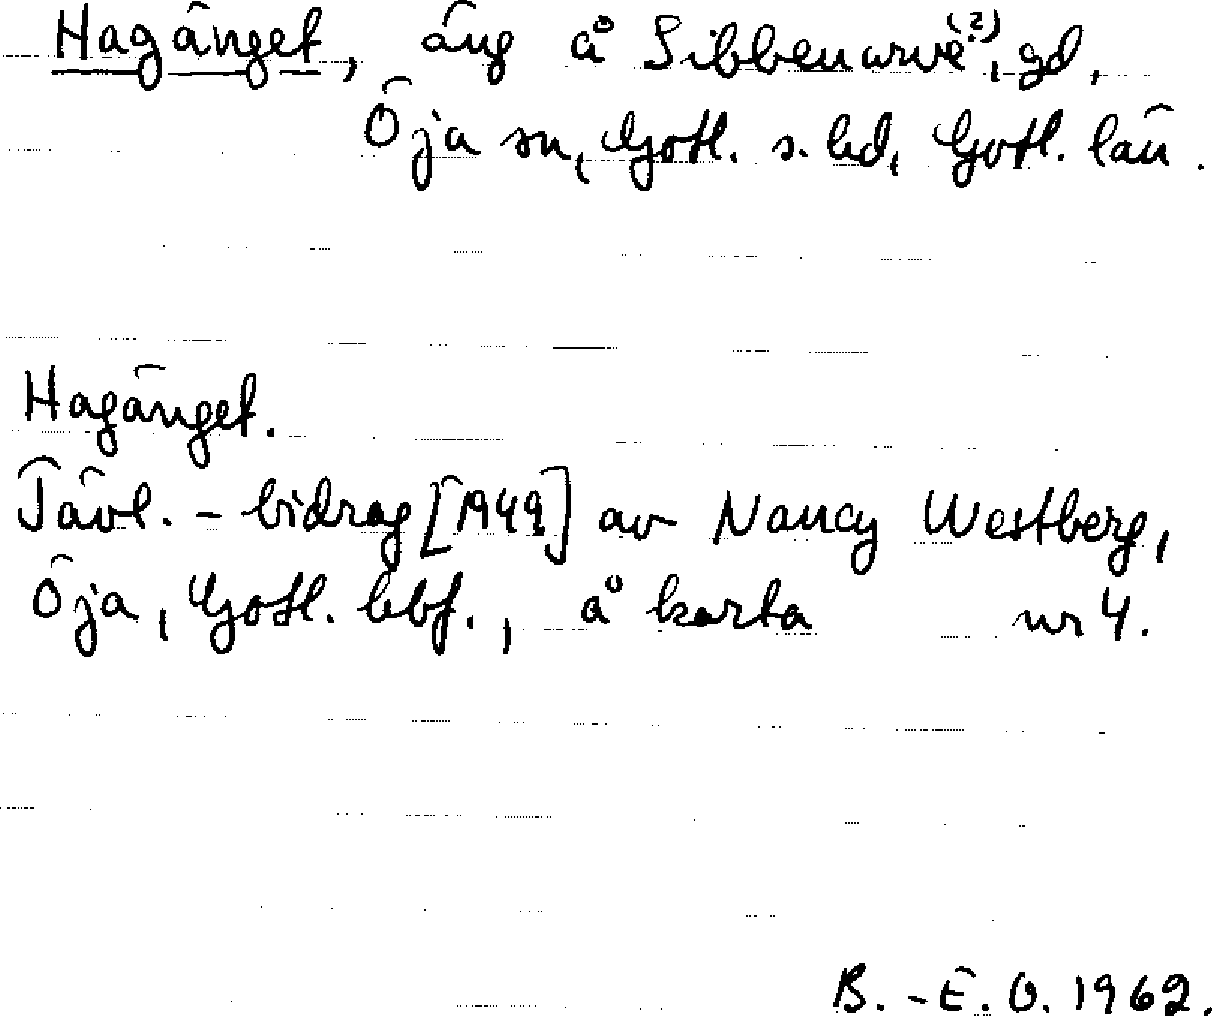 Hagänget, äng å Sibbenarve(?), gd,
Öja sn, Gotl. s. hd, Gotl. län.
Hagänget.
Tävl.-bidrag [1949] av Nancy Westberg,
Öja, Gotl. hbf., å karta nr 4.
B.-E. O. 1962.